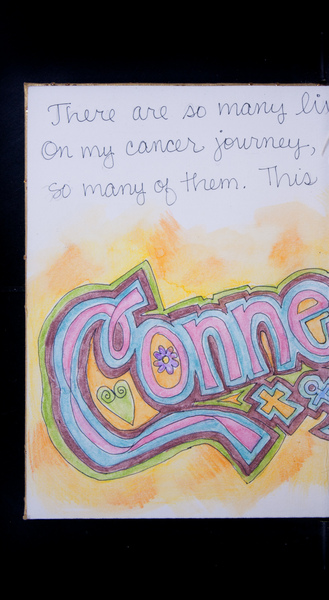 There are so many
On my cancer journey,
so many of them. This
Conne